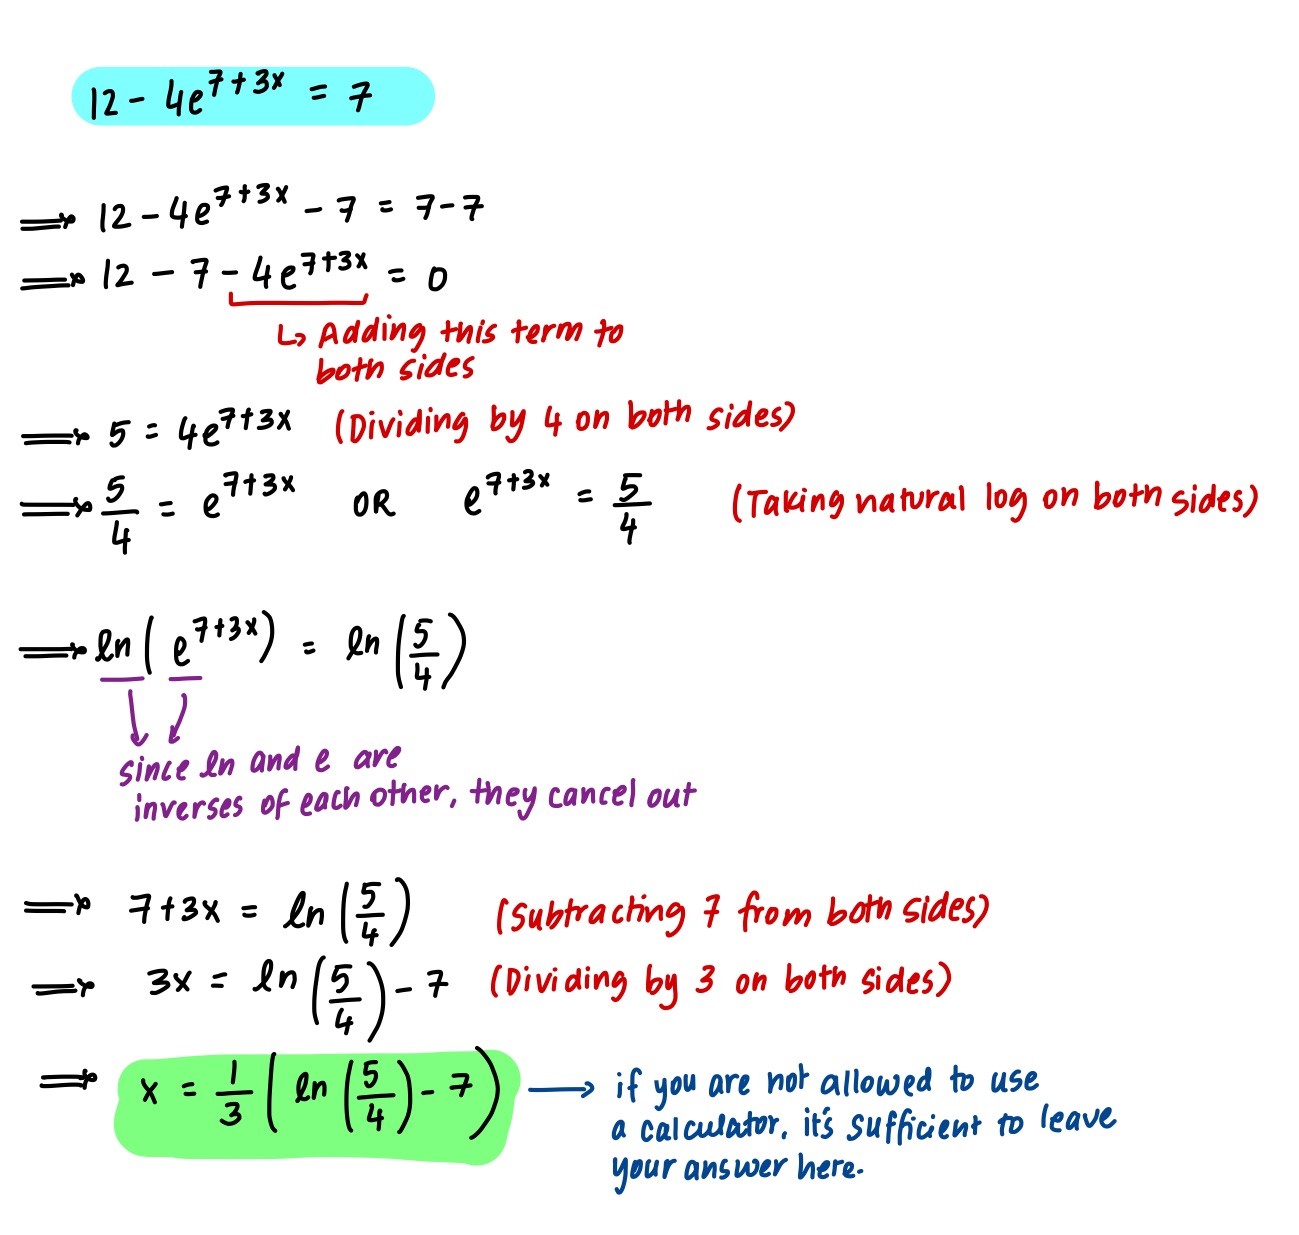 12 - 4e^{7+3x} = 7
⟹ 12 - 4e^{7+3x} - 7 = 7-7
⟹ 12 - 7 - 4e^{7+3x} = 0
↳ Adding this term to
both sides
⟹ 5 = 4e^{7+3x} (Dividing by 4 on both sides)
⟹ 5/4 = e^{7+3x} OR e^{7+3x} = 5/4 (Taking natural log on both sides)
⟹ ln(e^{7+3x}) = ln(5/4)
since ln and e are
inverses of each other, they cancel out
⟹ 7+3x = ln(5/4) (Subtracting 7 from both sides)
⟹ 3x = ln(5/4) - 7 (Dividing by 3 on both sides)
⟹ x = 1/3 (ln(5/4) - 7) → if you are not allowed to use
a calculator, it's sufficient to leave
your answer here.